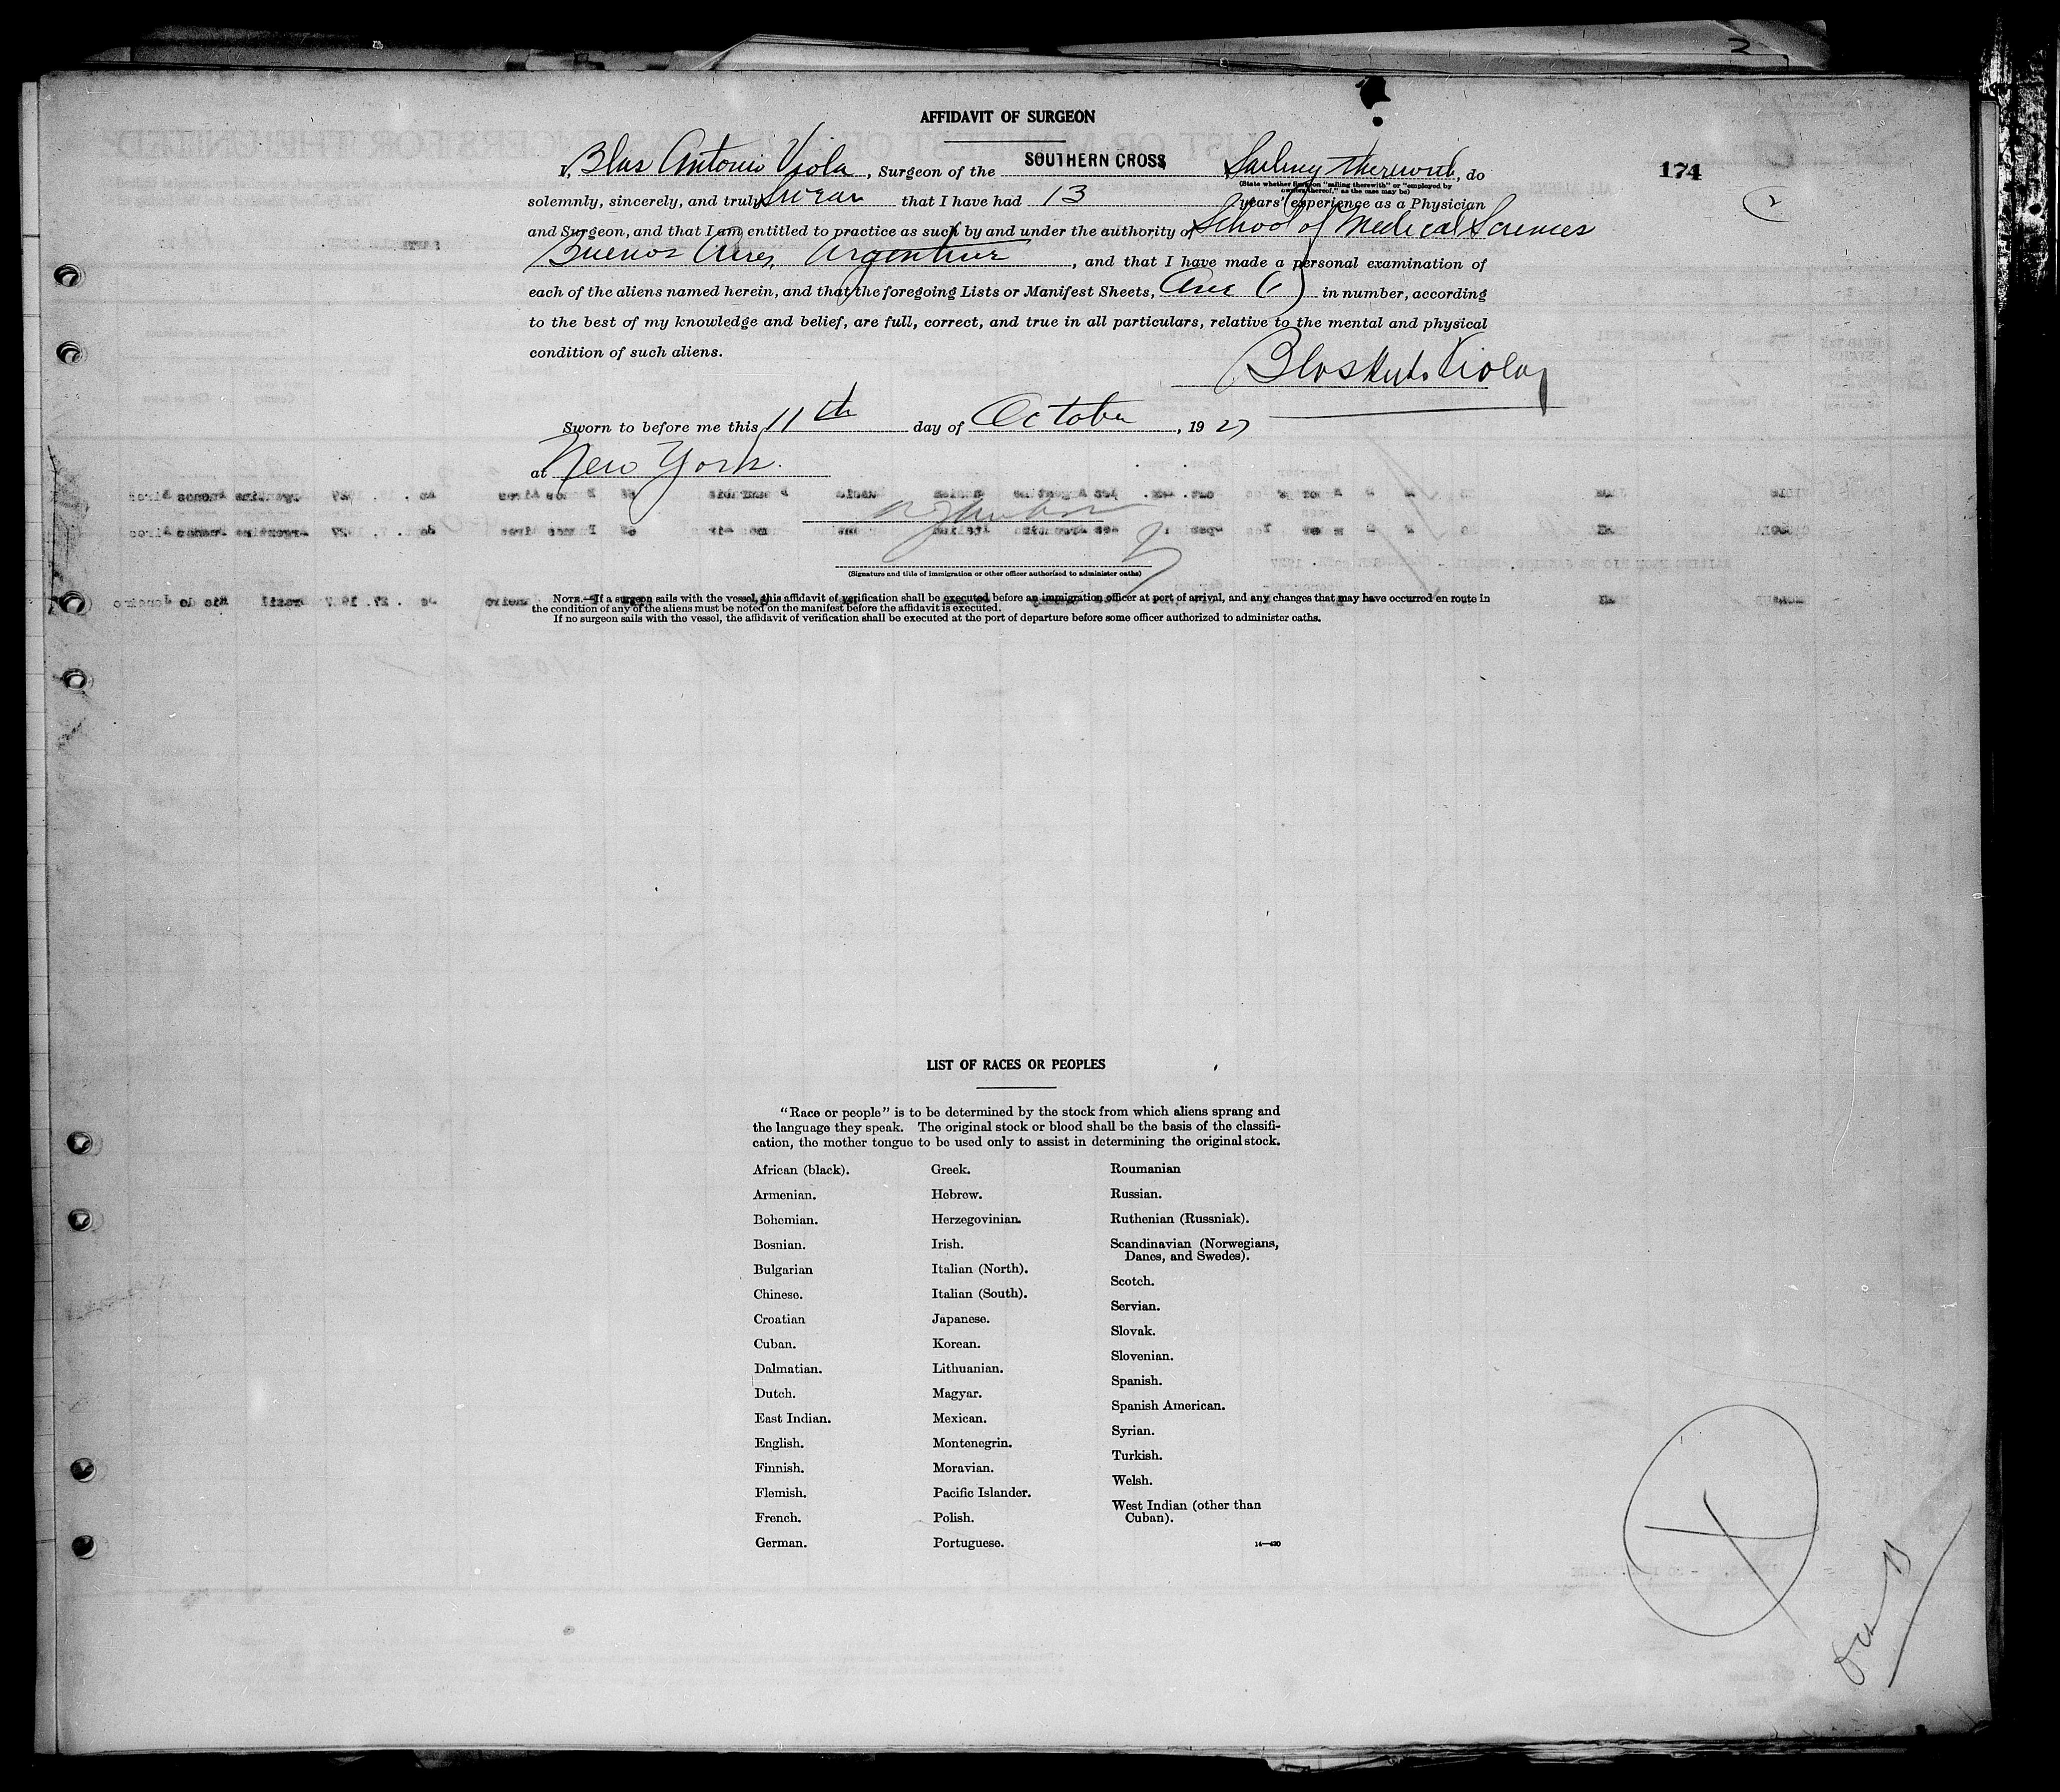 2
AFFIDAVIT OF SURGEON
174
2
I, Blas Antonio Viola, Surgeon of the SOUTHERN CROSS Sailing therewith, do
(State whether Surgeon "sailing therewith" or "employed by
owners thereof," as the case may be)
solemnly, sincerely, and truly Swear that I have had 13 years' experience as a Physician
and Surgeon, and that I am entitled to practice as such by and under the authority of School of Medical Sciences
Buenos Aires, Argentine, and that I have made a personal examination of
each of the aliens named herein, and that the foregoing Lists or Manifest Sheets, One (1) in number, according
to the best of my knowledge and belief, are full, correct, and true in all particulars, relative to the mental and physical
condition of such aliens.
Blas Ant. Viola
Sworn to before me this 11th day of October, 1927
at New York.
(Signature and title of immigration or other officer authorized to administer oaths)
NOTE.—If a surgeon sails with the vessel, this affidavit of verification shall be executed before an immigration officer at port of arrival, and any changes that may have occurred en route in
the condition of any of the aliens must be noted on the manifest before the affidavit is executed.
If no surgeon sails with the vessel, the affidavit of verification shall be executed at the port of departure before some officer authorized to administer oaths.
LIST OF RACES OR PEOPLES
"Race or people" is to be determined by the stock from which aliens sprang and
the language they speak. The original stock or blood shall be the basis of the classifi-
cation, the mother tongue to be used only to assist in determining the original stock.
African (black).
Armenian.
Bohemian.
Bosnian.
Bulgarian
Chinese.
Croatian
Cuban.
Dalmatian.
Dutch.
East Indian.
English.
Finnish.
Flemish.
French.
German.
Greek.
Hebrew.
Herzegovinian.
Irish.
Italian (North).
Italian (South).
Japanese.
Korean.
Lithuanian.
Magyar.
Mexican.
Montenegrin.
Moravian.
Pacific Islander.
Polish.
Portuguese.
Roumanian
Russian.
Ruthenian (Russniak).
Scandinavian (Norwegians,
Danes, and Swedes).
Scotch.
Servian.
Slovak.
Slovenian.
Spanish.
Spanish American.
Syrian.
Turkish.
Welsh.
West Indian (other than
Cuban).
14—430